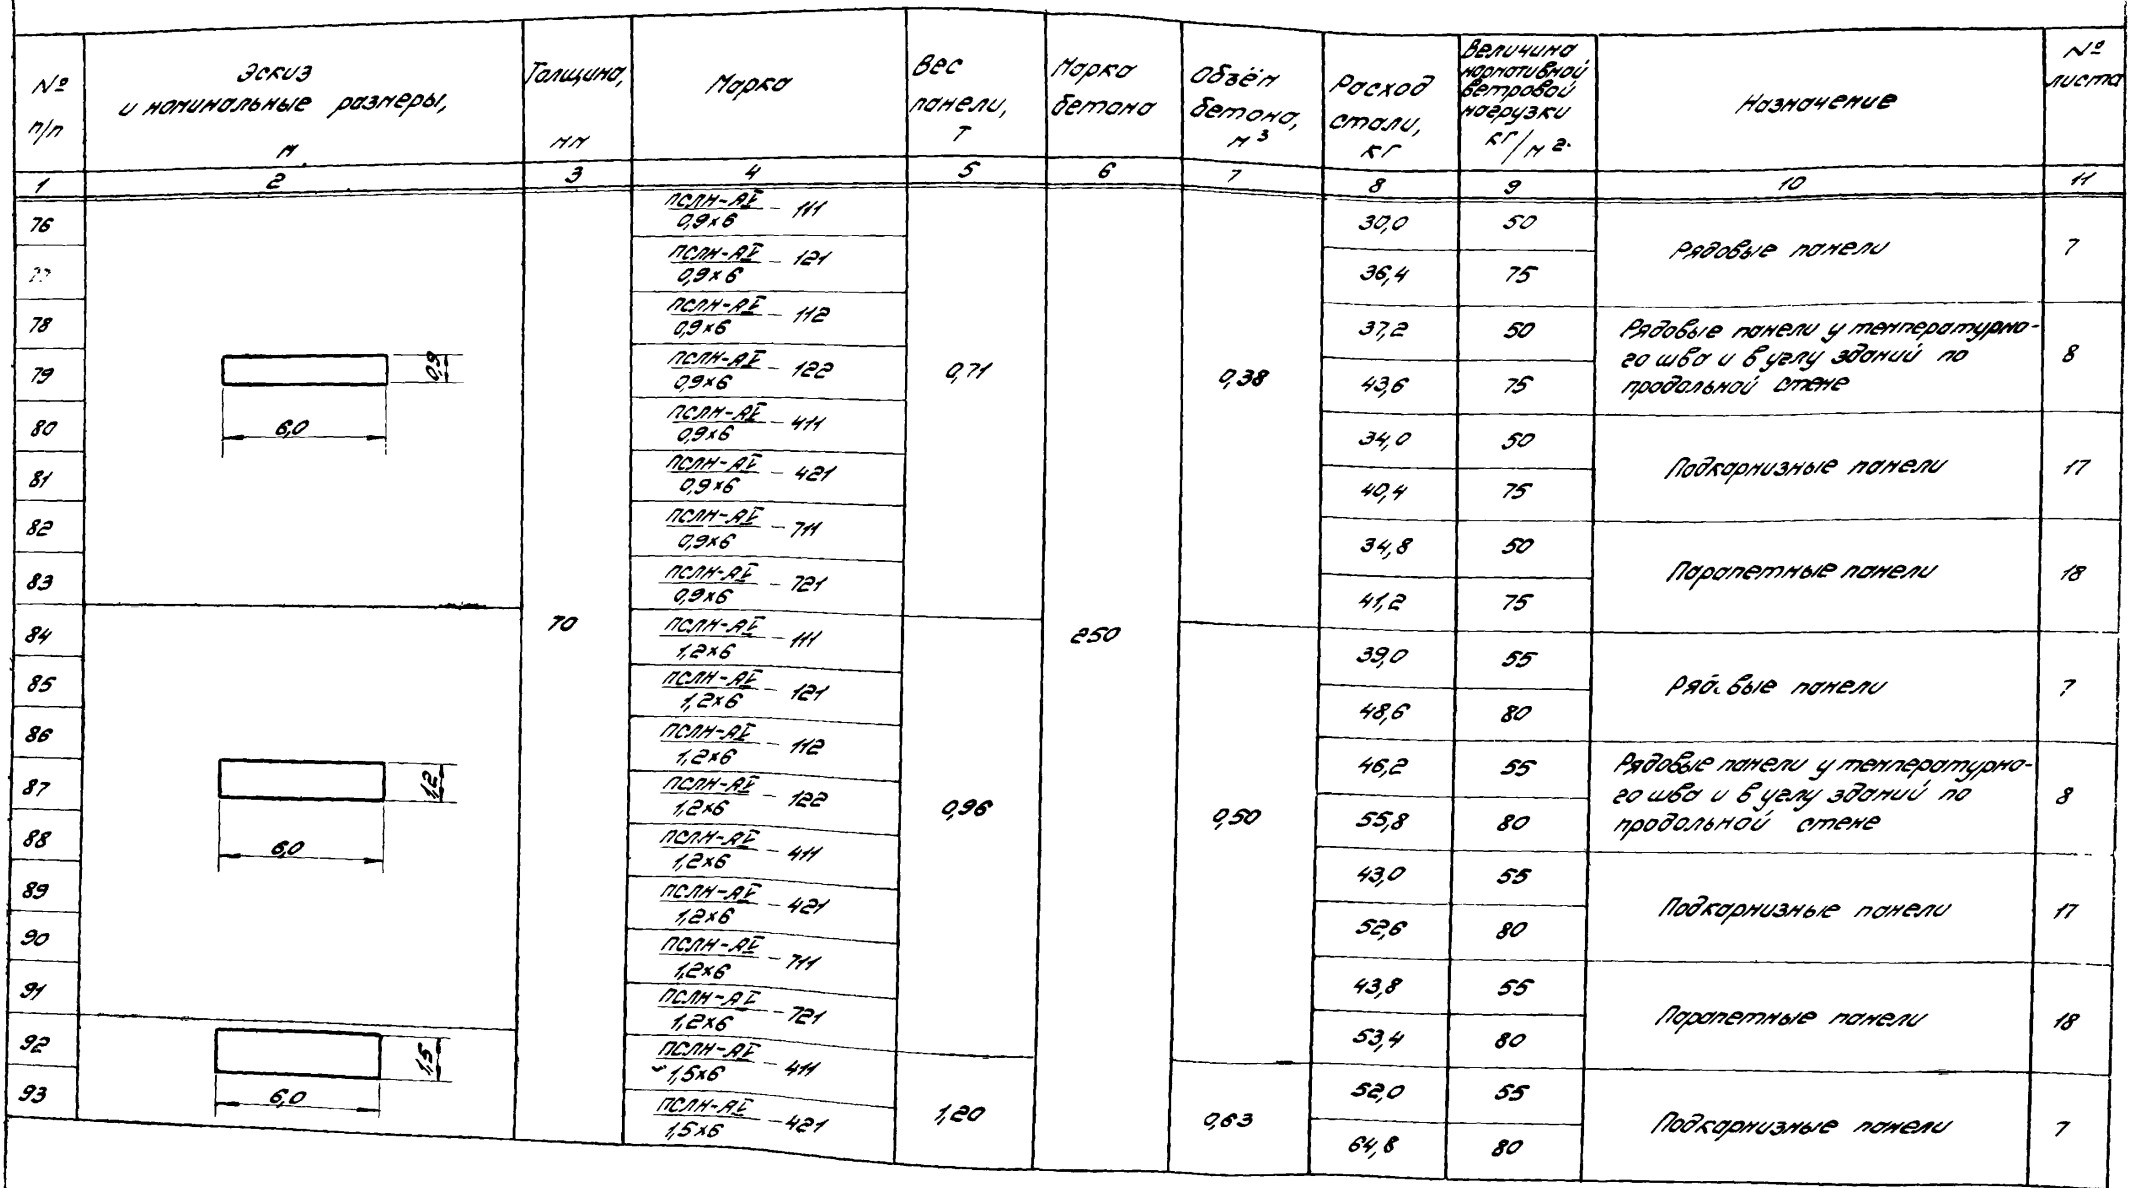 № п/п | Эскиз и номинальные размеры, м. | Толщина, мм | Марка | Вес панели, Т | Марка бетона | Объём бетона, м³ | Расход стали, кг | Величина нормативной ветровой нагрузки кг/м². | Назначение | № листа
1 | 2 | 3 | 4 | 5 | 6 | 7 | 8 | 9 | 10 | 11
76 | 0,9 6,0 | 70 | ПСЛН-АV/0,9×6 - 111 | 0,71 | 250 | 0,38 | 30,0 | 50 | Рядовые панели | 7
77 | ПСЛН-АV/0,9×6 - 121 | 36,4 | 75
78 | ПСЛН-АV/0,9×6 - 112 | 37,2 | 50 | Рядовые панели у температурно-
го шва и в углу зданий по
продольной стене | 8
79 | ПСЛН-АV/0,9×6 - 122 | 43,6 | 75
80 | ПСЛН-АV/0,9×6 - 411 | 34,0 | 50 | Подкарнизные панели | 17
81 | ПСЛН-АV/0,9×6 - 421 | 40,4 | 75
82 | ПСЛН-АV/0,9×6 - 711 | 34,8 | 50 | Парапетные панели | 18
83 | ПСЛН-АV/0,9×6 - 721 | 41,2 | 75
84 | 1,2 6,0 | ПСЛН-АV/1,2×6 - 111 | 0,96 | 0,50 | 39,0 | 55 | Рядовые панели | 7
85 | ПСЛН-АV/1,2×6 - 121 | 48,6 | 80
86 | ПСЛН-АV/1,2×6 - 112 | 46,2 | 55 | Рядовые панели у температурно-
го шва и в углу зданий по
продольной стене | 8
87 | ПСЛН-АV/1,2×6 - 122 | 55,8 | 80
88 | ПСЛН-АV/1,2×6 - 411 | 43,0 | 55 | Подкарнизные панели | 17
89 | ПСЛН-АV/1,2×6 - 421 | 52,6 | 80
90 | ПСЛН-АV/1,2×6 - 711 | 43,8 | 55 | Парапетные панели | 18
91 | ПСЛН-АV/1,2×6 - 721 | 53,4 | 80
92 | 1,5 6,0 | ПСЛН-АV/1,5×6 - 411 | 1,20 | 0,63 | 52,0 | 55 | Подкарнизные панели | 7
93 | ПСЛН-АV/1,5×6 - 421 | 64,8 | 80